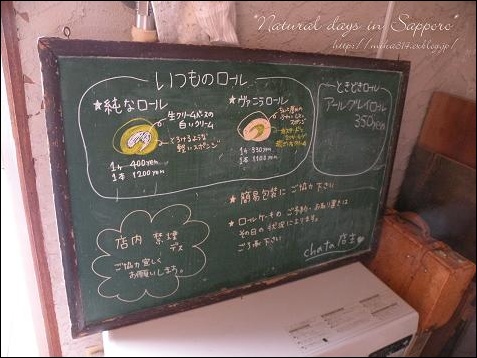 "Natural days in Sapporo"
いつものロール
★純なロール
生クリームベースの
白いクリーム
とろけるような
軽いスポンジ
1ヶ 400yen
1本 1200yen
★ヴァニラロール
スポンジ
クリーム
1ヶ 330yen
1本 1100yen
ときどきロール
アールグレイロール
350yen
★ 簡易包装に ご協力 下さい
★ ロールケーキの ご予約・お取り置きは
その日の 状況に よります。
ご了承 下さい
chata 店主
店内 禁煙
デス
ご協力 宜しく
お願いします。